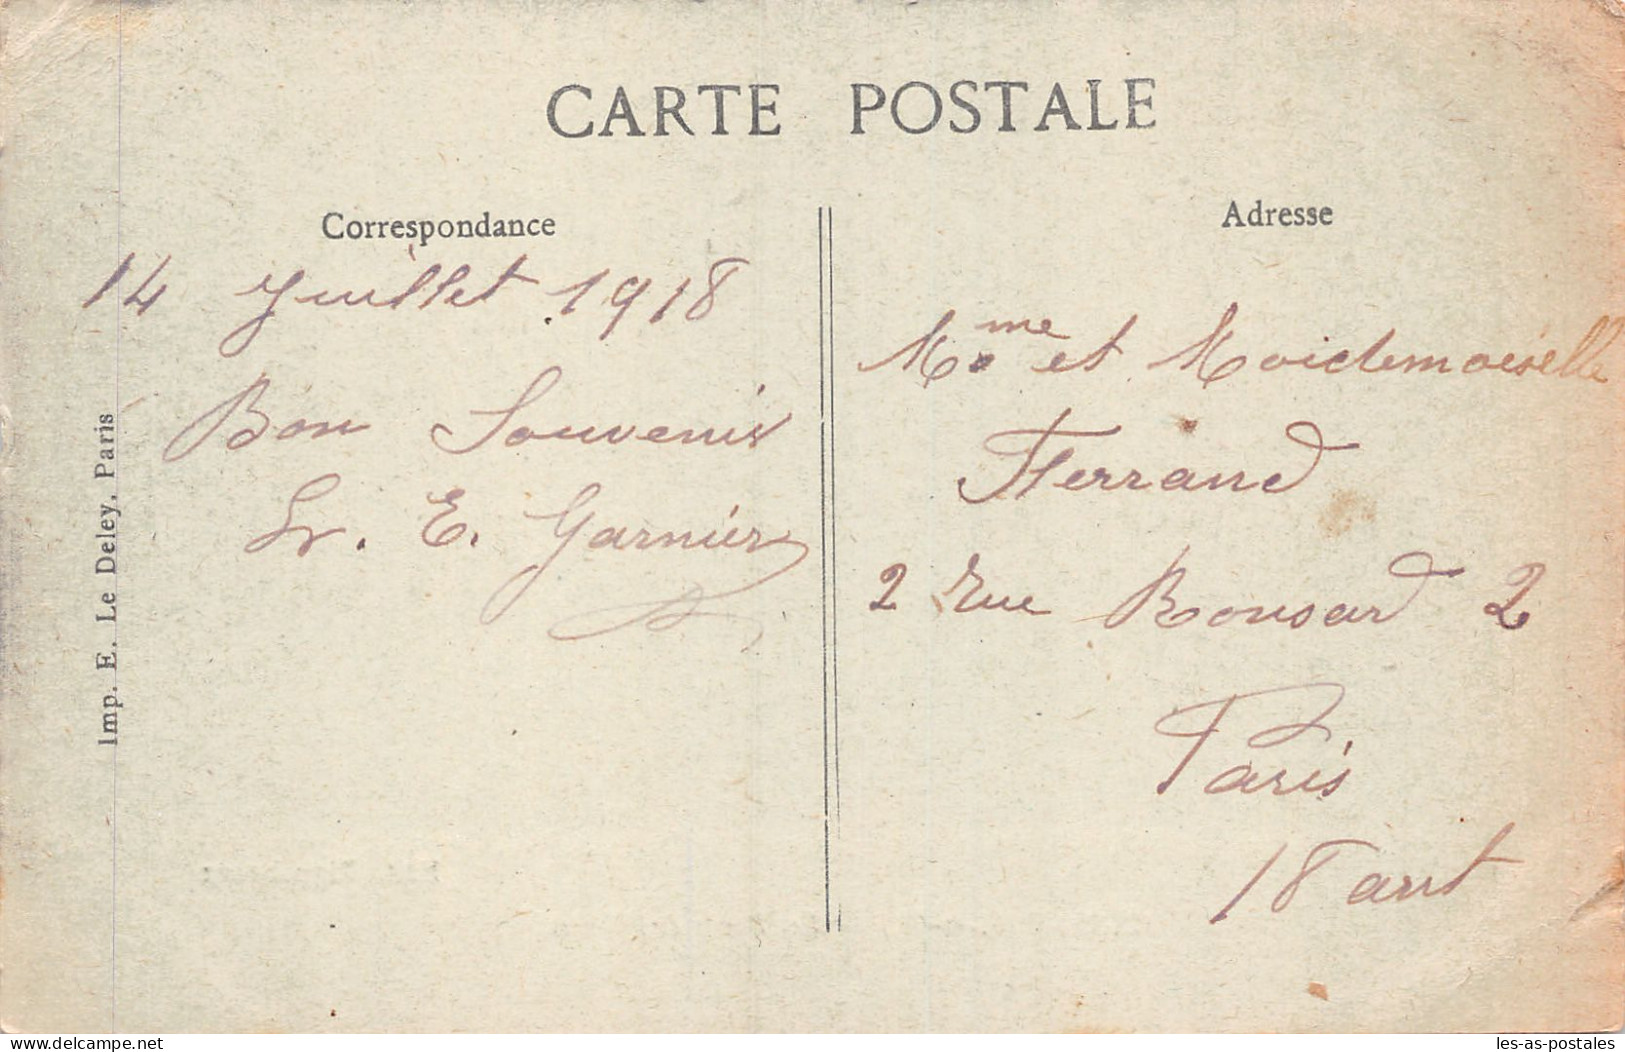 CARTE POSTALE
Correspondance
14 Juillet 1918
Bon Souvenir
E. Garnier
Imp. E. Le Deley, Paris
Adresse
Mme et Maidemoiselle
Ferrand
2 rue Ronsard 2
Paris
18 arrt
delcampe.net
les-as-postales